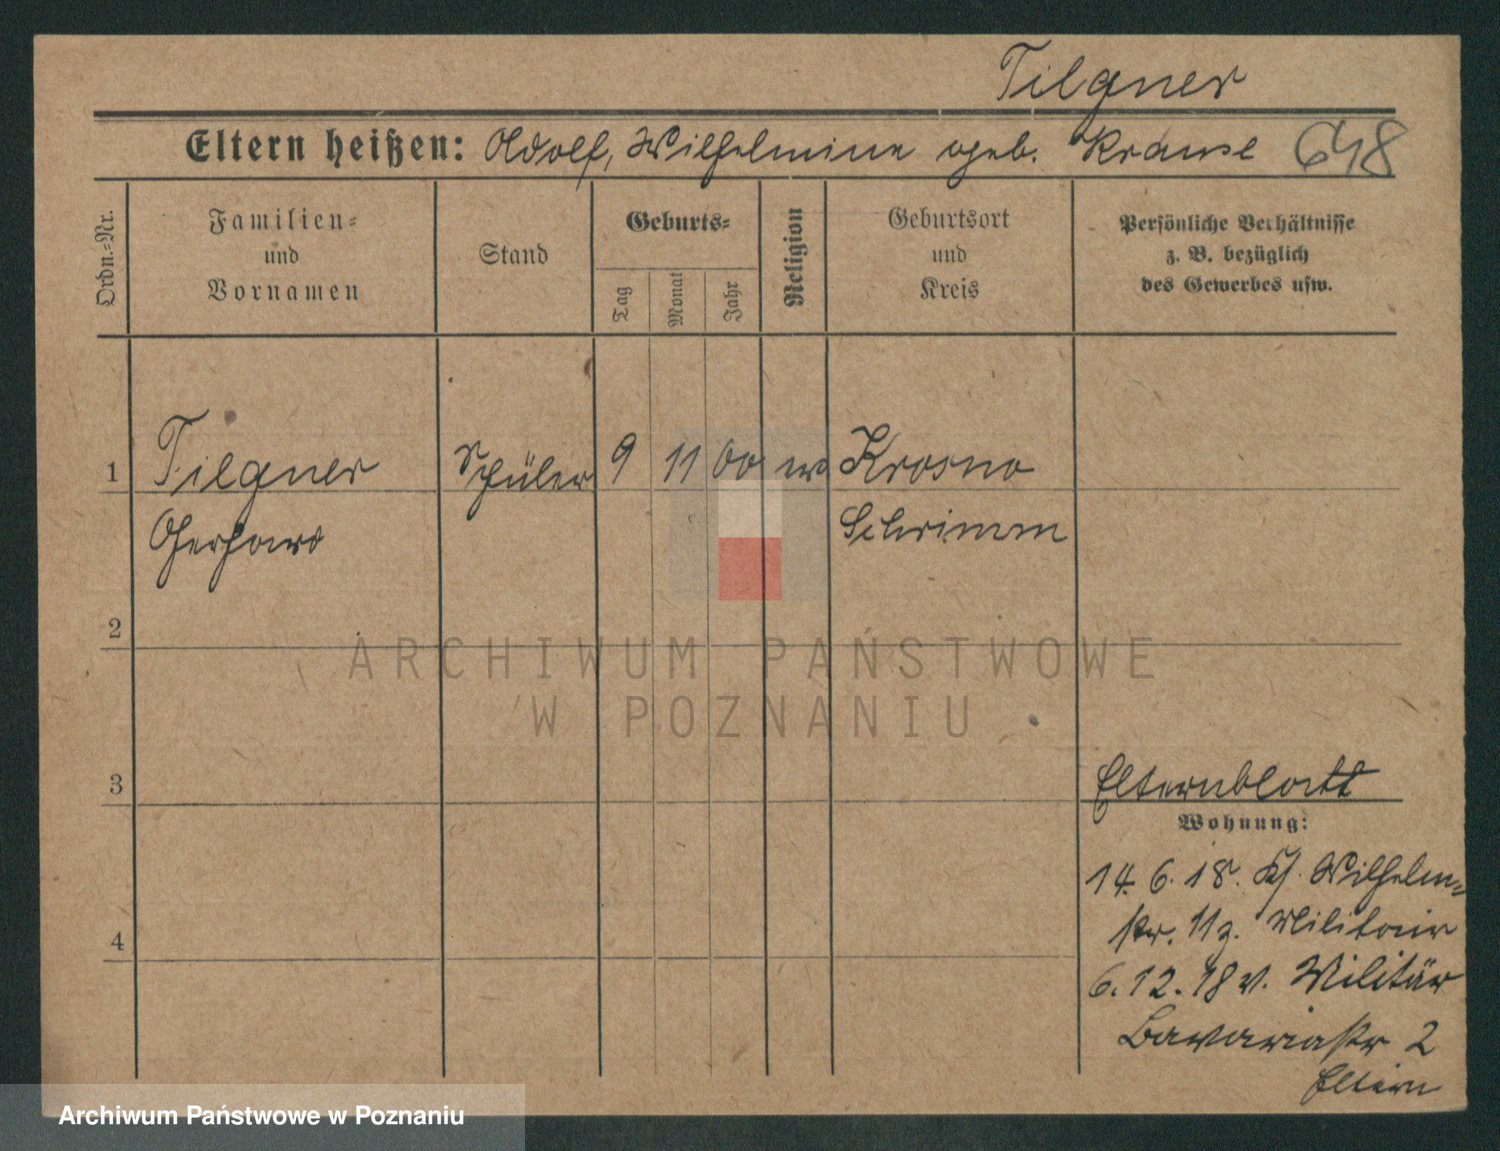 Tilgner
Eltern heißen: Adolf, Wilhelmine geb. Krause 648
Ordn.=Nr.
Familien=
und
Vornamen
Stand
Geburts=
Tag
Monat
Jahr
Religion
Geburtsort
und
Kreis
Persönliche Verhältnisse
z. B. bezüglich
des Gewerbes usw.
1 Tilgner Schüler 9 11 00 Krosno
Gerhard Schrimm
2
ARCHIWUM PAŃSTWOWE
W POZNANIU
3 Elternblatt
Wohnung:
14. 6. 18. Wilhelm=
str. 11 z. Militair
4
6. 12. 18 v. Militär
Bavariastr 2
Eltern
Archiwum Państwowe w Poznaniu